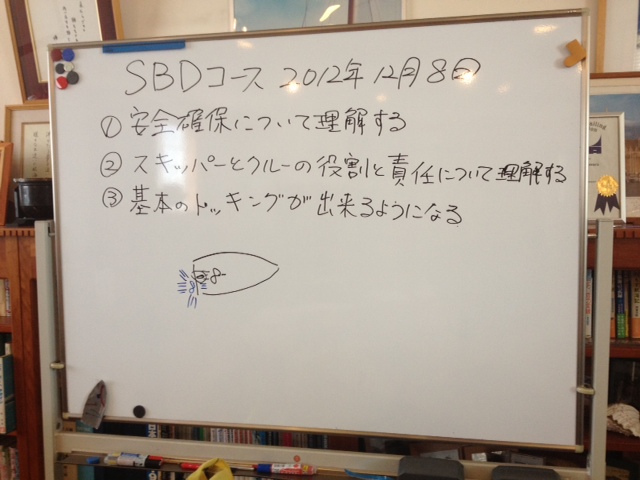 SBDコース 2012年12月8日
① 安全確保について理解する
② スキッパーとクルーの役割と責任について理解する
③ 基本のドッキングが出来るようになる